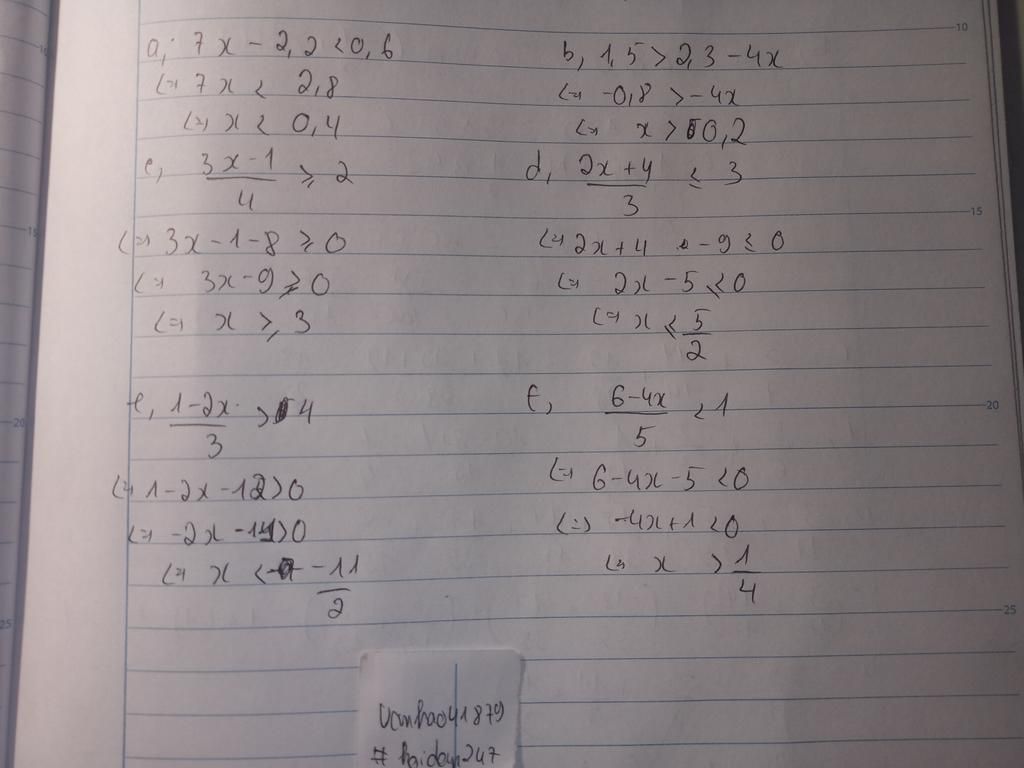 a, 7x - 2,2 < 0,6
<=> 7x < 2,8
<=> x < 0,4
b, 1,5 > 2,3 - 4x
<=> -0,8 > -4x
<=> x > 0,2
c, (3x - 1)/4 ≥ 2
<=> 3x - 1 - 8 ≥ 0
<=> 3x - 9 ≥ 0
<=> x ≥ 3
d, (2x + 4)/3 ≤ 3
<=> 2x + 4 - 9 ≤ 0
<=> 2x - 5 ≤ 0
<=> x ≤ 5/2
e, (1 - 2x)/3 > 4
<=> 1 - 2x - 12 > 0
<=> -2x - 11 > 0
<=> x < -11/2
f, (6 - 4x)/5 < 1
<=> 6 - 4x - 5 < 0
<=> -4x + 1 < 0
<=> x > 1/4
vanhao41879
# hoidap247
10
15
20
25